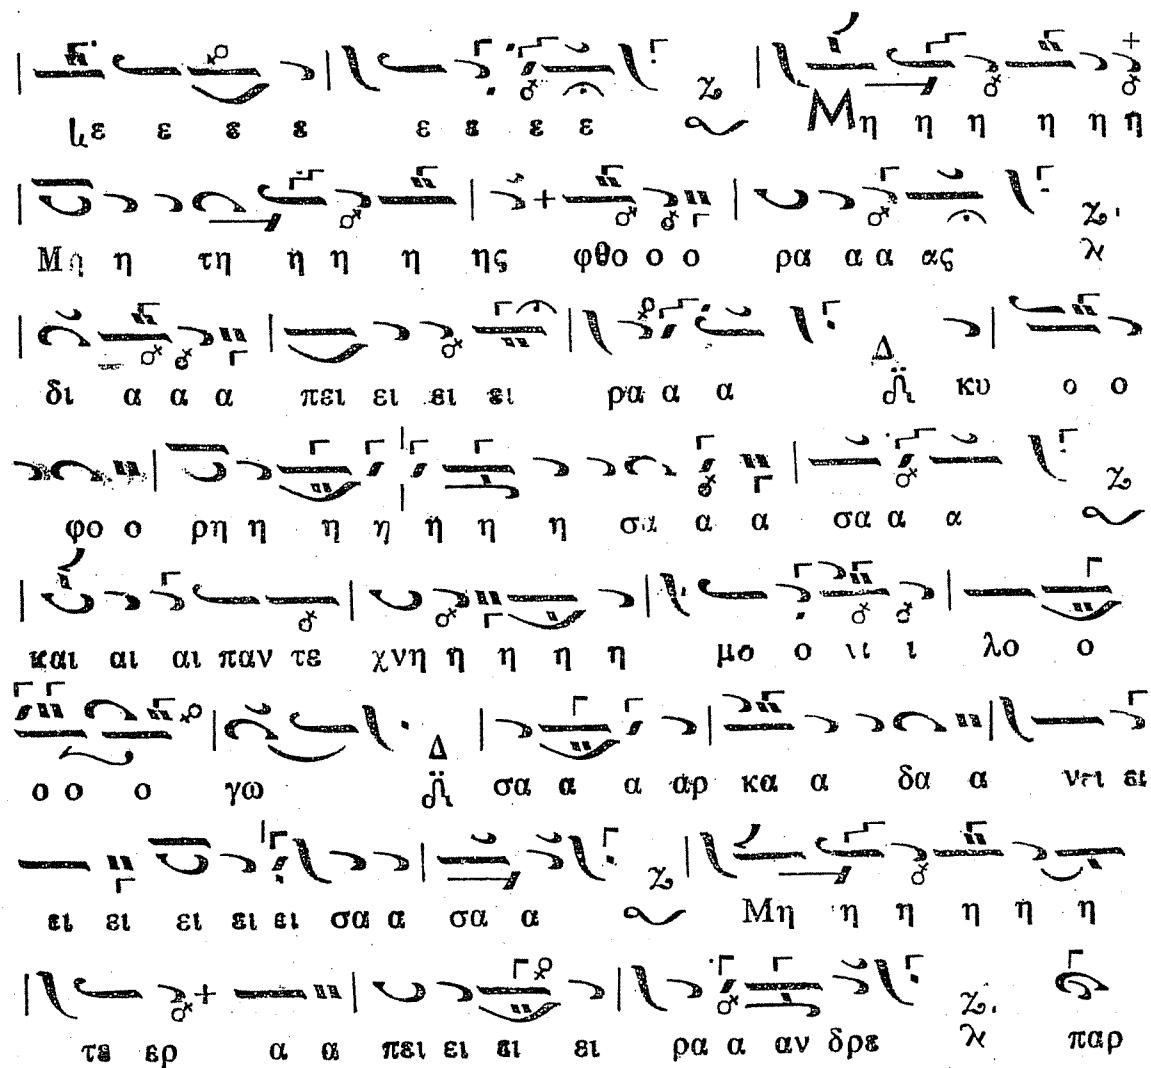 ε ε ε ε ε ε ε Μη η η η η η
Μη η τη η η η ης φθο ο ο ρα α α ας
δι α α α πει ει ει ει ρα α α κυ ο ο
φο ο ρη η η η η η η σα α α σα α α
και αι αι παν τε χνη η η η η μο ο ι ι λο ο
ο ο ο γω σα α α αρ κα α δα α ει
ει ει ει ει ει σα α σα α Μη η η η η η
τε ερ α α πει ει ει ει ρα α αν δρε παρ